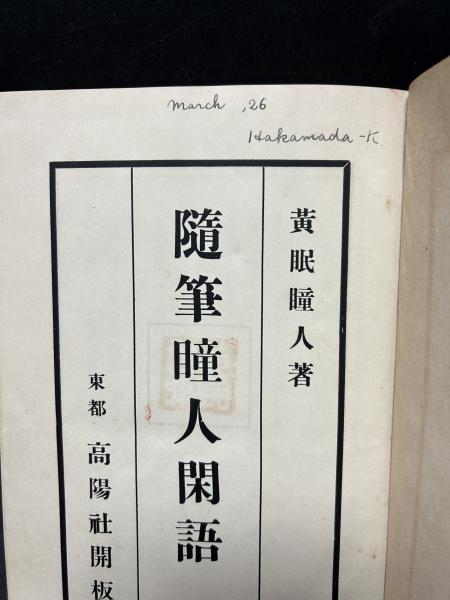 March , 26
Hakamada -K.
黃眠瞳人著
隨筆瞳人閑語
東都 高陽社開板